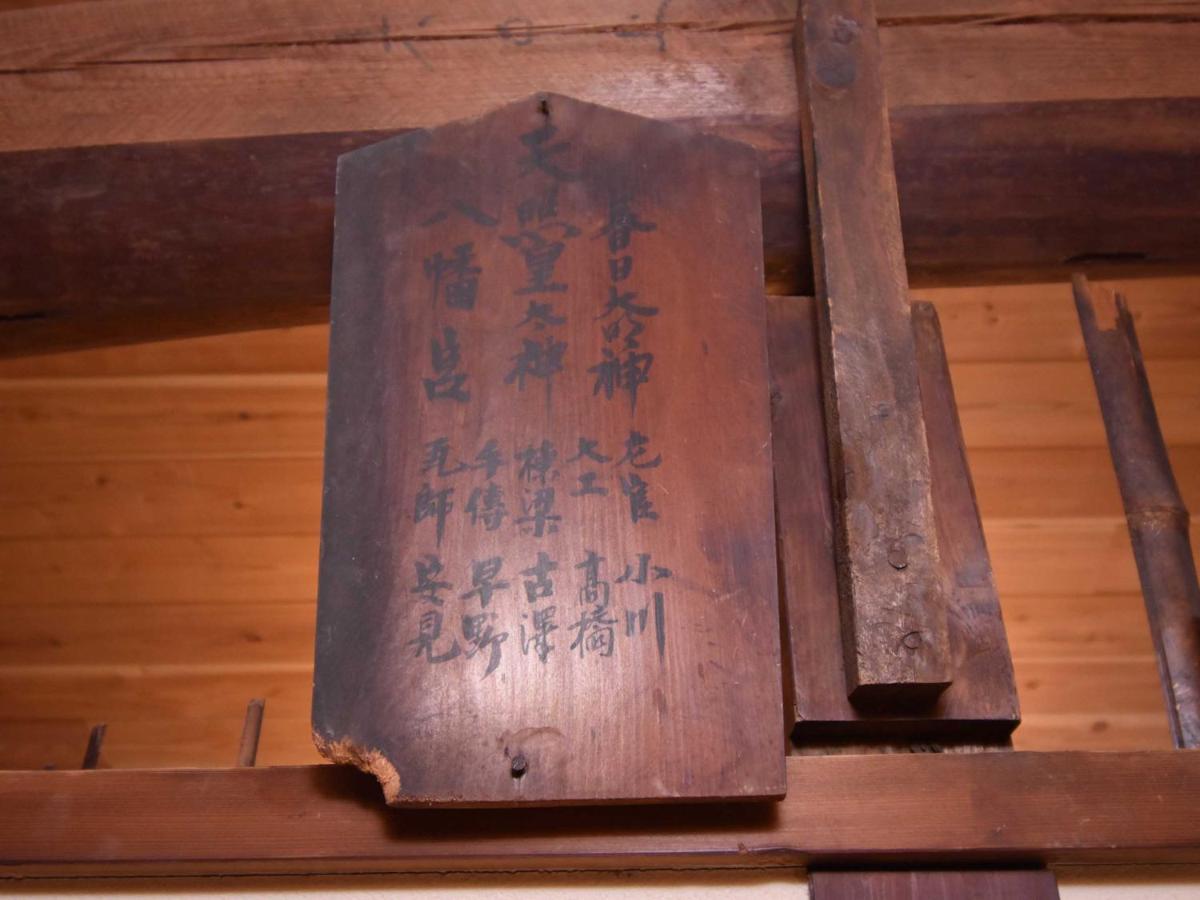 春日大明神
天照皇太神
八幡宮
左官 小川
大工 髙橋
棟梁 古澤
手傳 早野
瓦師 安見